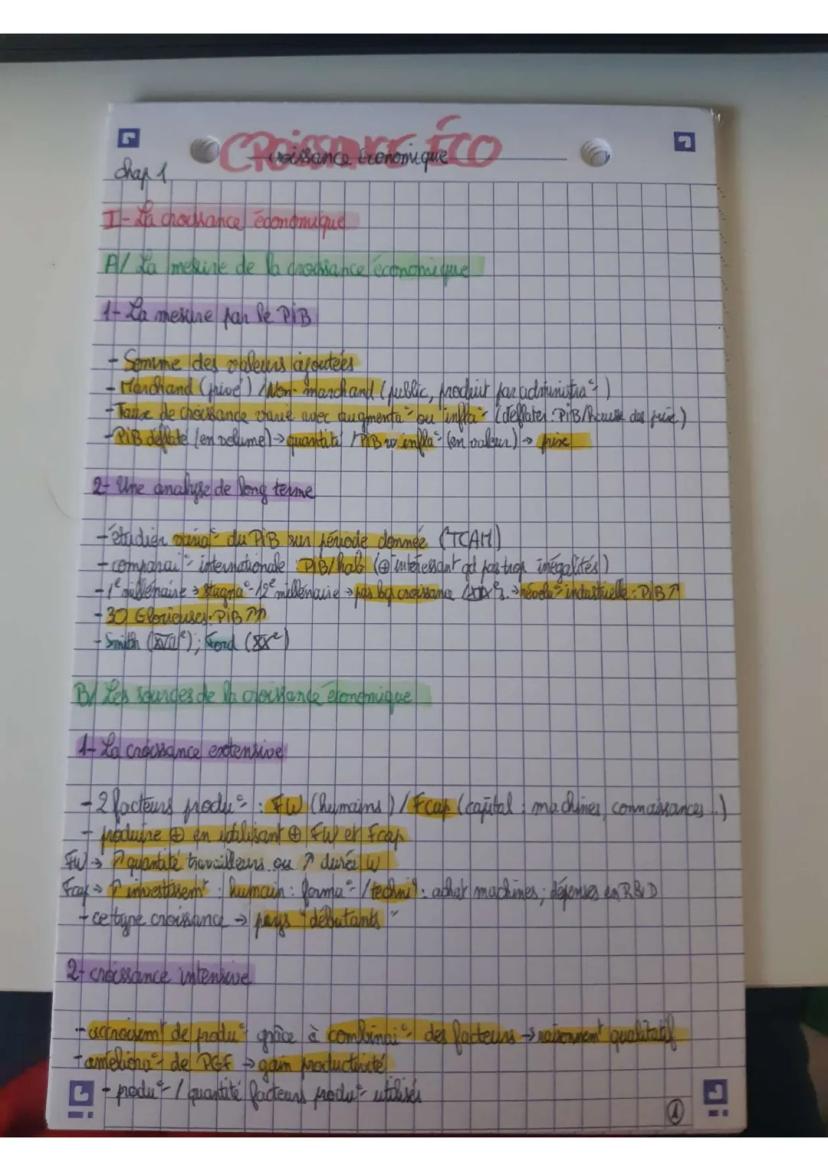 CROISSANCE ÉCO
Croissance Économique
Chap 1
I- La croissance économique
A/ La mesure de la croissance économique
1- La mesure par le PIB
- Somme des valeurs ajoutées
- Marchand (privé) / Non-marchand (public, produit par administra°)
- Taux de croissance varie avec augmenta° ou infla° (déflater : PIB/hausse des prix)
- PIB déflaté (en volume) → quantité / PIB w infla° (en valeur) → prix
2- Une analyse de long terme
- étudier varia° du PIB sur période donnée (TCAM)
- comparai° internationale : PIB/hab (⊕ intéressant qd pas trop inégalités)
- 1e millénaire → stagna° / 2e millénaire → pas bcp croissance → révolu° industrielle : PIB ↗
- 30 Glorieuses : PIB ↗↗
- Smith (XVIIIe) ; Ford (XXe)
B/ Les sources de la croissance économique
1- La croissance extensive
- 2 facteurs produ° : FW (humains) / Fcap (capital : machines, connaissances...)
- produire ⊕ en utilisant ⊕ FW et Fcap
FW → ↗ quantité travailleurs ou ↗ durée W
Fcap → ↗ investissemt : humain : forma° / techni : achat machines ; dépenses en R&D
- ce type croissance → pays "débutants"
2- croissance intensive
- accroissemt de produ° grâce à combinai° des facteurs → raisonnemt qualitatif
- améliora° de PGF → gain productivité
- produ° / quantité facteurs produ° utilisés
1